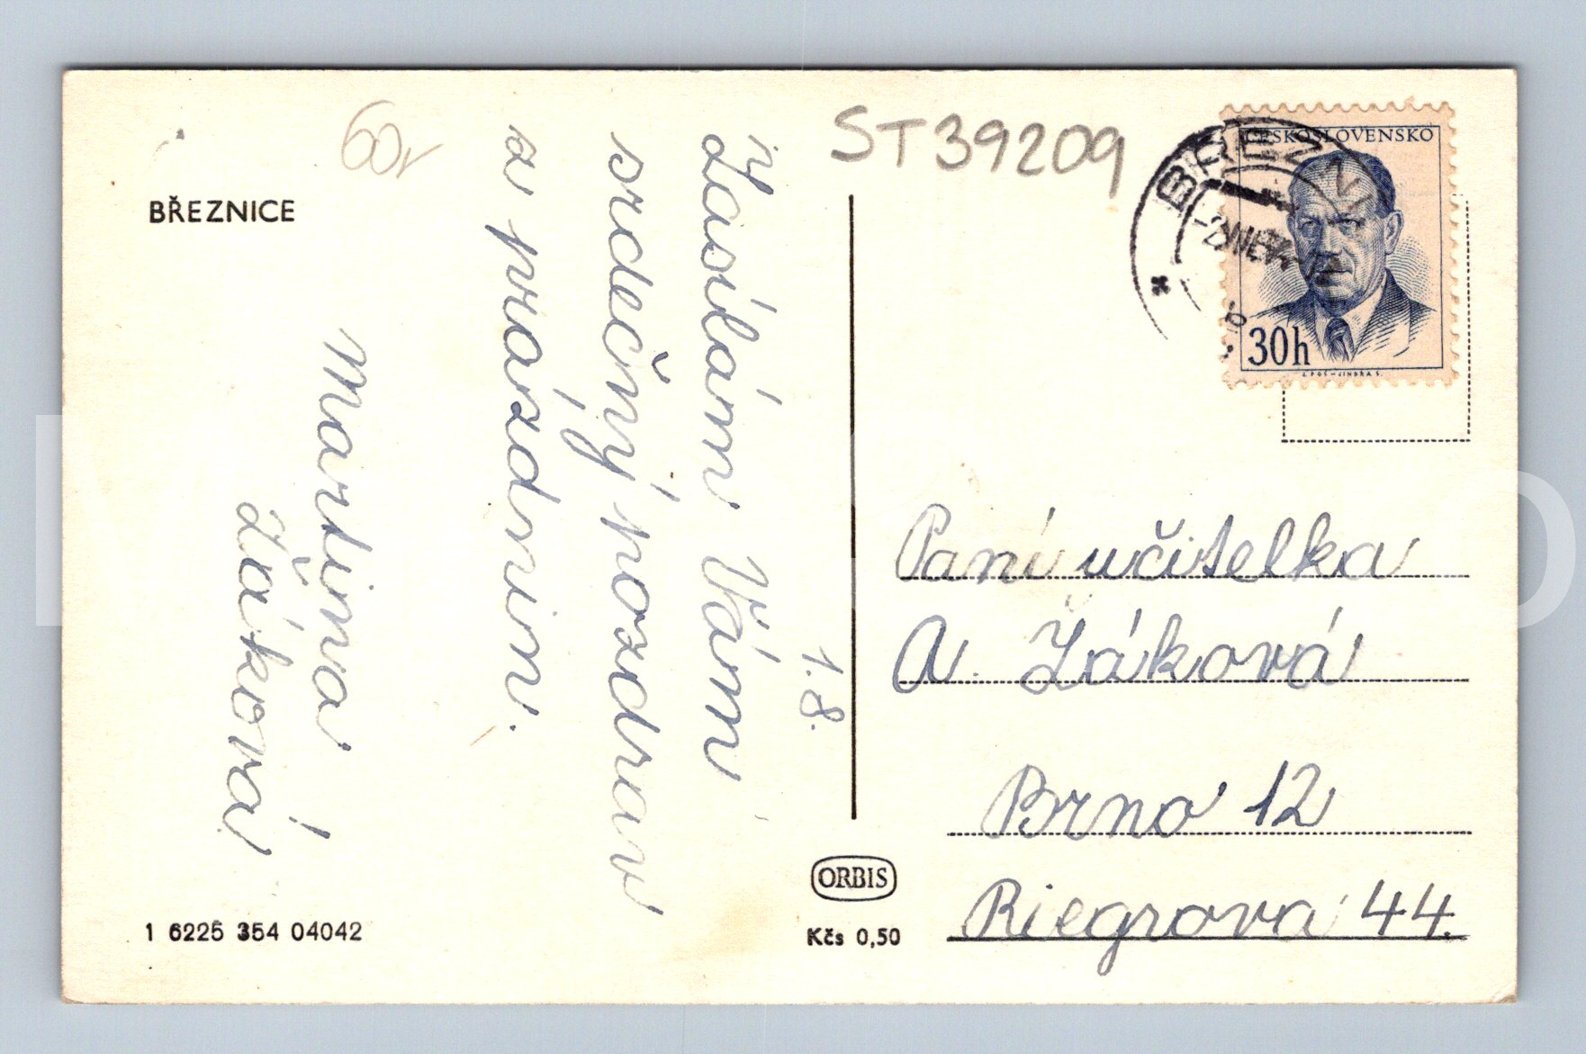 60,-
ST39209
BŘEZNICE
ČESKOSLOVENSKO
BŘEZNI
30h
1.8.
Zasílám Vám
srdečný pozdrav
z prázdnin.
Martina
Žáková!
Paní učitelka
A. Žáková
Brno 12
Riegrova 44.
ORBIS
Kčs 0,50
1 6225 354 04042